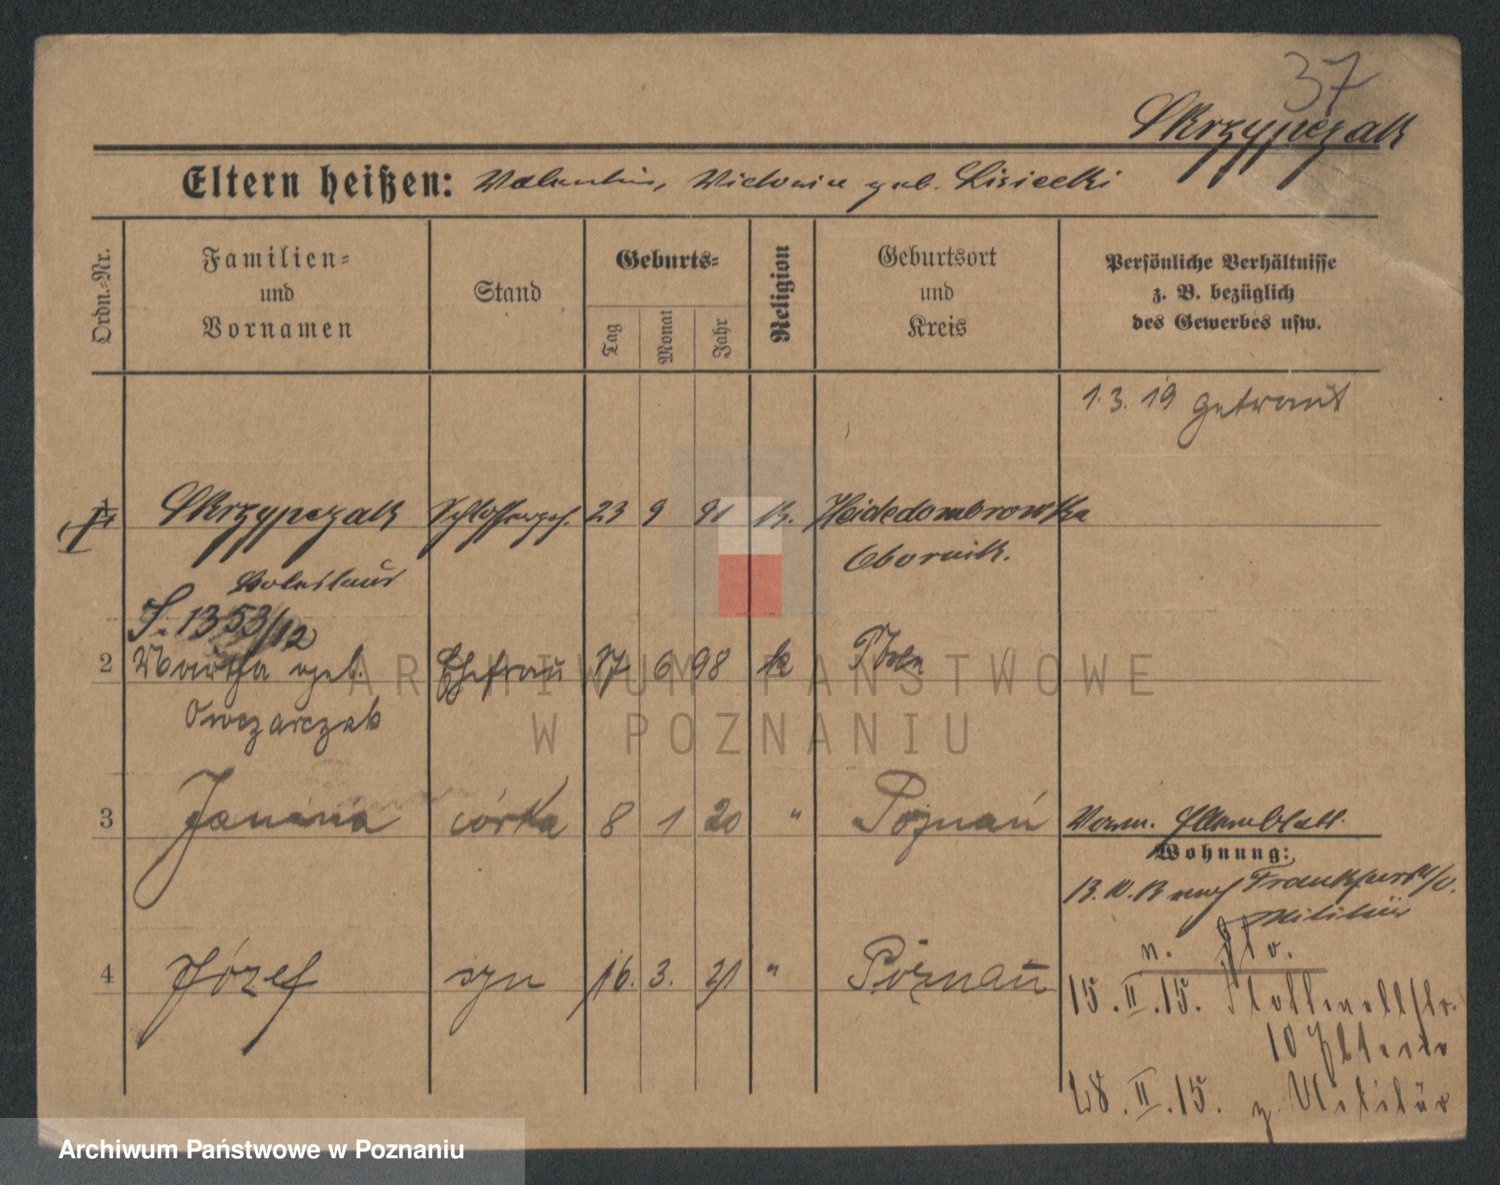 37
Skrzypczak
Eltern heißen: Valentin, Victoria geb. Lisiecki
Ordn.-Nr.
Familien- und Vornamen
Stand
Geburts-
Tag
Monat
Jahr
Religion
Geburtsort und Kreis
Persönliche Verhältnisse
z. B. bezüglich
des Gewerbes usw.
1.3.19 getraut
1 Skrzypczak Schlosserges. 23 9 91 k. Heidedombrowka
Obornik.
Boleslaus
S. 1353/12
2 Martha geb. Ehefrau 17. 6 98 k Posen
Owczarczak
3 Janina córka 8 1 20 " Poznań
Vorm. Elternblatt.
Wohnung:
13.10.13 nach Frankfurt a/O.
Militär
4 Józef syn 16. 3. 21 " Poznań
15.II.15.
10 Eltern
28.II.15. z. Militär
ARCHIWUM PAŃSTWOWE
W POZNANIU
Archiwum Państwowe w Poznaniu